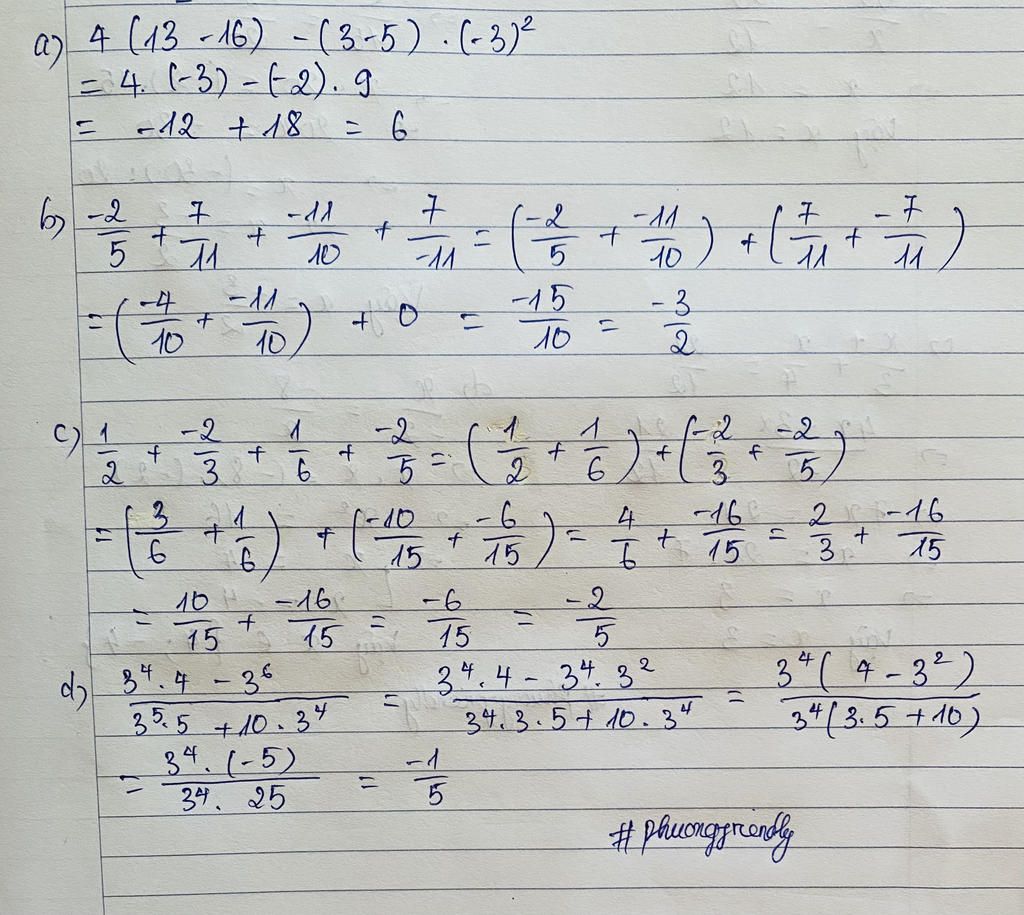 a) 4 (13 - 16) - (3 - 5) . (-3)²
= 4. (-3) - (-2) . 9
= -12 + 18 = 6
b) -2/5 + 7/11 + -11/10 + 7/-11 = (-2/5 + -11/10) + (7/11 + -7/11)
= (-4/10 + -11/10) + 0 = -15/10 = -3/2
c) 1/2 + -2/3 + 1/6 + -2/5 = (1/2 + 1/6) + (-2/3 + -2/5)
= (3/6 + 1/6) + (-10/15 + -6/15) = 4/6 + -16/15 = 2/3 + -16/15
= 10/15 + -16/15 = -6/15 = -2/5
d) (3⁴ . 4 - 3⁶)/(3⁵ . 5 + 10 . 3⁴) = (3⁴ . 4 - 3⁴ . 3²)/(3⁴ . 3 . 5 + 10 . 3⁴) = 3⁴(4 - 3²)/3⁴(3 . 5 + 10)
= 3⁴ . (-5)/3⁴ . 25 = -1/5
#phuongfriendly